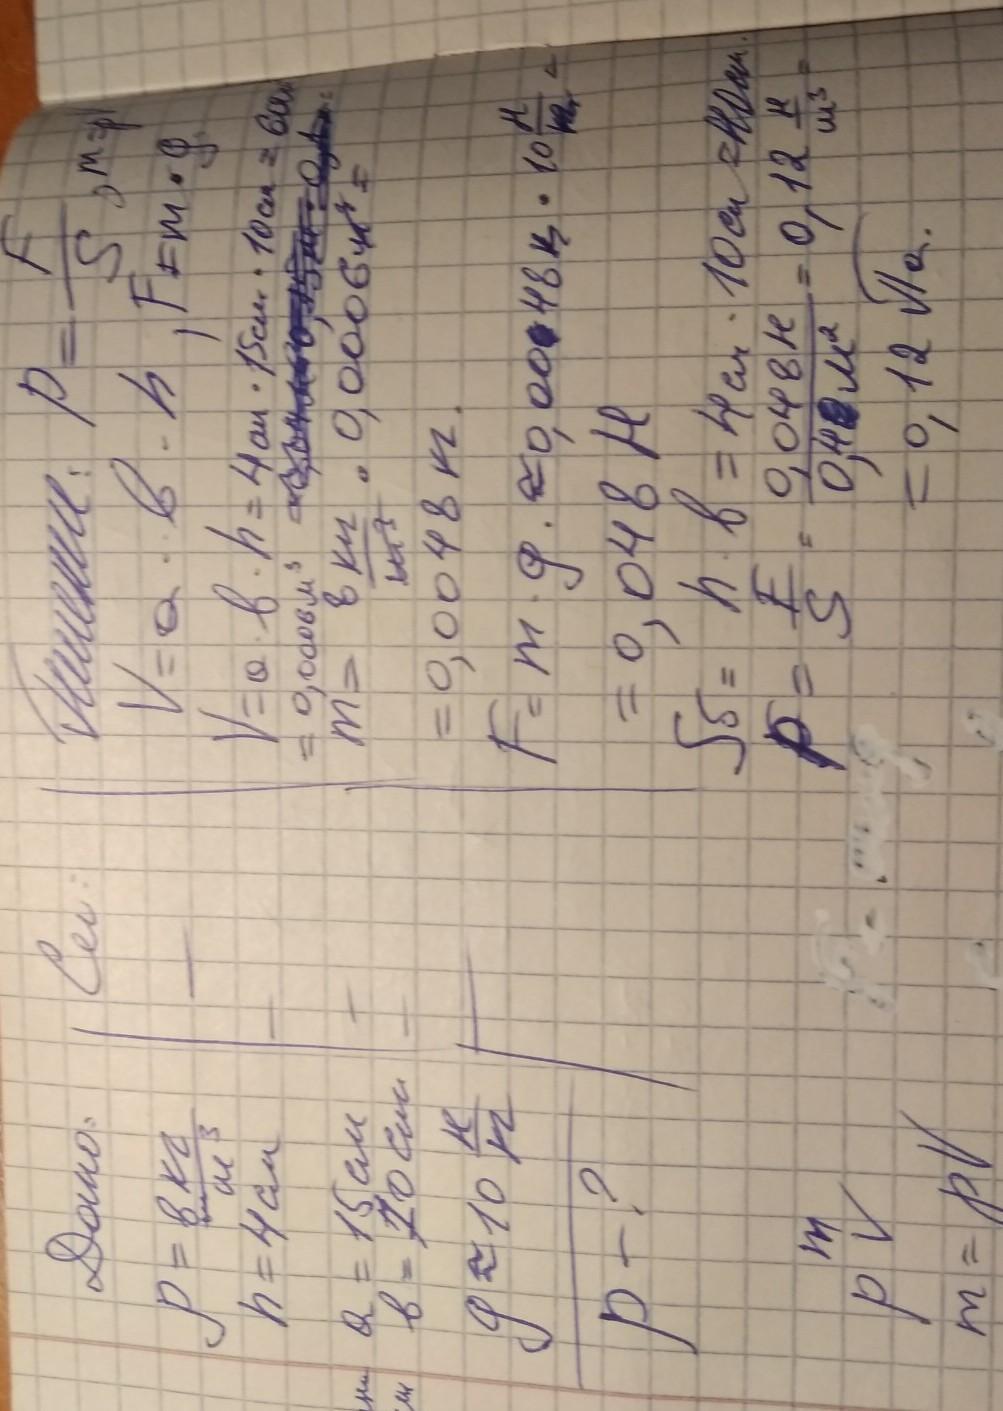 Дано:
ρ = 8 кг/м³
h = 4 см
a = 15 см
в = 10 см
g ≈ 10 Н/кг
p - ?
Си:
—
—
—
—
—
Решение: p = F/S, m = ρ
V = a · в · h, F = m · g
V = a · в · h = 4 см · 15 см · 10 см = 600
= 0,0006 м³
m = 8 кг/м³ · 0,0006 м³ =
= 0,0048 кг.
F = m · g · ≈ 0,0048 кг · 10 Н/кг =
= 0,048 Н
S = h · в = 4 см · 10 см =
p = F/S = 0,048 Н/0,4 м² = 0,12 Н/м³ =
= 0,12 Па.
ρ m/V
m = ρV